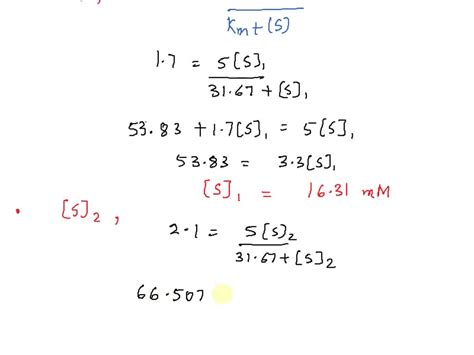 Km+[S]
1.7 = 5[S]₁
31.67 + [S]₁
53.83 + 1.7[S]₁ = 5[S]₁
53.83 = 3.3[S]₁
[S]₁ = 16.31 mM
[S]₂ ,
2.1 = 5[S]₂
31.67+[S]₂
66.507